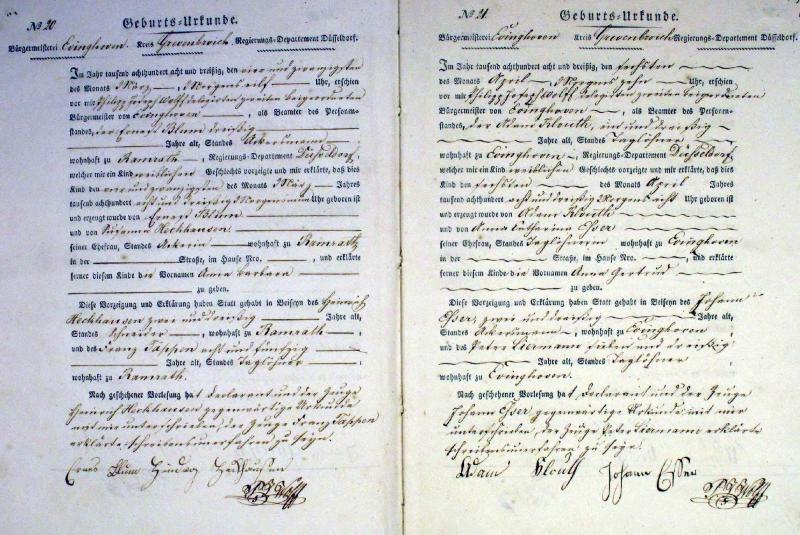 No 20 Geburts-Urkunde.
Bürgermeisterei Evinghoven. Kreis Grevenbroich. Regierungs-Departement Düsseldorf.
Im Jahr tausend achthundert acht und dreißig, den vier und zwanzigsten
des Monats März, Morgens elf Uhr, erschien
vor mir Philipp Joseph Wolff delegirten zweiten Beigeordneten
Bürgermeister von Evinghoven, als Beamter des Personen-
standes, der Ernest Blum dreißig
Jahre alt, Standes Ackersmann
wohnhaft zu Ramrath, Regierungs-Departement Düsseldorf,
welcher mir ein Kind weiblichen Geschlechts vorzeigte und mir erklärte, daß dies
Kind den vier und zwanzigsten des Monats März Jahres
tausend achthundert acht und dreißig Morgens Uhr geboren ist
und erzeugt wurde von Ernest Blum
und von Susanna Heckhausen
seiner Ehefrau, Standes Ackerin wohnhaft zu Ramrath
in der Straße, im Hause Nro. , und erklärte
ferner diesem Kinde die Vornamen Anna Barbara
zu geben.
Diese Vorzeigung und Erklärung haben Statt gehabt in Beiseyn des Heinrich
Heckhausen zwei und dreißig Jahre alt,
Standes Schneider, wohnhaft zu Ramrath,
und des Franz Tappen acht und fünfzig
Jahre alt, Standes Taglöhner
wohnhaft zu Ramrath.
Nach geschehener Vorlesung hat Declarant und der Zeuge
Heinrich Heckhausen gegenwärtige Urkunde
mit mir unterschrieben, der Zeuge Franz Tappen
erklärte schreibensunerfahren zu seyn.
Ernes Blum Heckhausen
No 21. Geburts-Urkunde.
Bürgermeisterei Evinghoven Kreis Grevenbroich Regierungs-Departement Düsseldorf.
Im Jahr tausend achthundert acht und dreißig, den sechsten
des Monats April, Morgens zehn Uhr, erschien
vor mir Philipp Joseph Wolff delegirten zweiten Beigeordneten
Bürgermeister von Evinghoven, als Beamter des Personen-
standes, der Adam Klouth, ein und dreißig
Jahre alt, Standes Taglöhner
wohnhaft zu Evinghoven, Regierungs-Departement Düsseldorf,
welcher mir ein Kind weiblichen Geschlechts vorzeigte und mir erklärte, daß dies
Kind den sechsten des Monats April Jahres
tausend achthundert acht und dreißig Morgens acht Uhr geboren ist
und erzeugt wurde von Adam Klouth
und von Anna Catharina Esser
seiner Ehefrau, Standes Taglöhnerin wohnhaft zu Evinghoven
in der Straße, im Hause Nro. , und erklärte
ferner diesem Kinde die Vornamen Anna Gertrud
zu geben.
Diese Vorzeigung und Erklärung haben Statt gehabt in Beiseyn des Johann
Esser, zwei und dreißig Jahre alt,
Standes Ackersmann, wohnhaft zu Evinghoven,
und des Peter Liermann sieben und dreißig
Jahre alt, Standes Taglöhner
wohnhaft zu Evinghoven.
Nach geschehener Vorlesung hat Declarant und der Zeuge
Johann Esser gegenwärtige Urkunde mit mir
unterschrieben, der Zeuge Peter Liermann erklärte
schreibensunerfahren zu seyn.
Adam Klouth Johann Esser